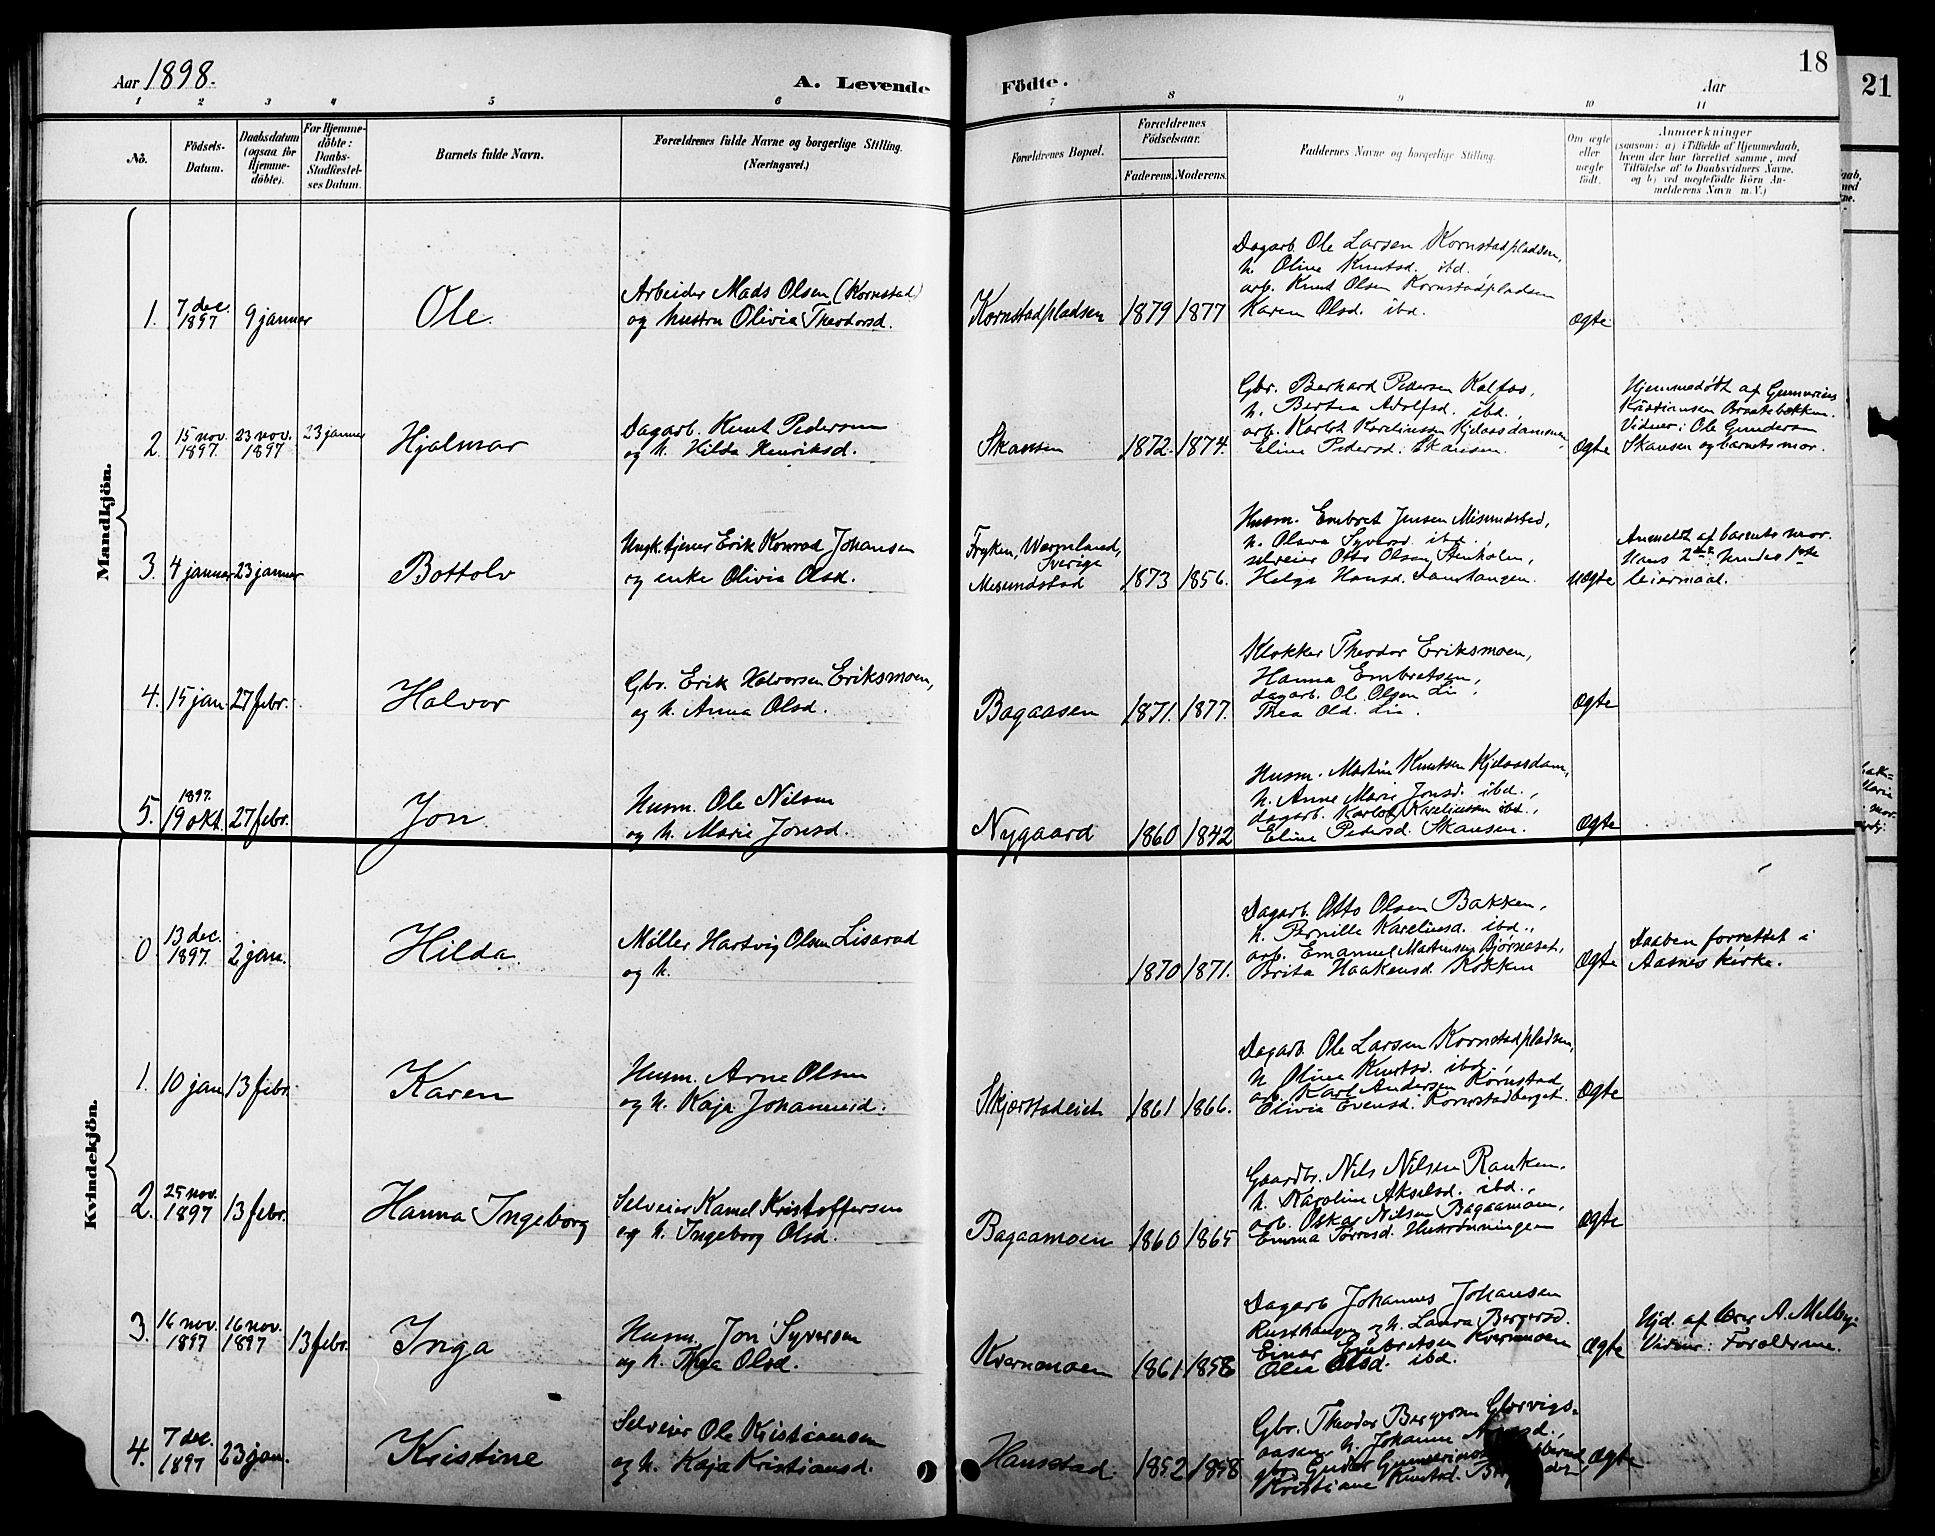 Aar 1898.
A. Levende Födte.
Aar
18
21
1 2 3 4 5 6 7 8 9 10 11
No.
Födsels-Datum.
Daabsdatum (ogsaa for Hjemme-döbte).
For Hjemme-döbte: Daabs-Stadfæstel-ses Datum.
Barnets fulde Navn.
Forældrenes fulde Navne og borgerlige Stilling. (Næringsvei.)
Forældrenes Bopæl.
Forældrenes Födselsaar.
Faderens. Moderens.
Faddernes Navne og borgerlige Stilling.
Om ægte eller uægte født.
Anmærkninger
(saasom: a) i Tilfælde af Hjemmedaab,
hvem der har forrettet samme, med
Tilföielse af to Daabsvidners Navne.
og b) ved uægtefödte Börn An-
melderens Navn m. V.)
Mandkjön.
1. 7 dec. 1897 9 januar Ole.
Arbeider Mads Olsen (Kornstad)
og hustru Olivia Theodorsd.
Kornstadpladsen 1879 1877
Dagarb. Ole Larsen Kornstadpladsen,
h. Oline Knutsd. ibd.
arb. Knut Olsen Kornstadpladsen
Karen Olsd. ibd.
ægte
2. 15 nov. 1897. 23 nov. 1897 23 januar Hjalmar
Dagarb. Knut Pedersen
og h. Hilda Henriksd.
Skansen 1872. 1874.
Gbr. Berhard Pedersen Kalfos,
h. Bertea Adolfsd. ibd.,
arb. Karlot Kareliussen Kjelaasdammen,
Eline Pedersd. Skansen.
ægte
Hjemmedøbt af Gunnerius
Kristiansen Braatebakken.
Vidner: Ole Gundersen
Skansen og barnets mor.
3. 4 januar 23 januar Bottolv
Ungk. tjener Erik Konrad Johansen
og enke Olivia Olsd.
Fryken, Wermland, Sverige
Mesundstad 1873 1856.
Husm. Embret Jensen Misundstad,
h. Olava Syversd. ibd.,
selveier Otto Olsen Stenholen,
Helga Hansd.
uægte
Anmeldt af barnets mor.
Hans 2det Hendes 1ste
leiermaal.
4. 15 jan. 27 febr. Halvor
Gbr. Erik Halvorsen Eriksmoen,
og h. Anna Olsd.
Bagaasen 1871. 1877.
Klokker Theodor Eriksmoen,
Hanna Embretsen,
dagarb. Ole Olsen Li,
Thea Old. Lie.
ægte
5. 1897. 19 okt. 27 febr. Jon.
Husm. Ole Nilsen
og h. Marie Jonsd.
Nygaard 1860 1842
Husm. Martin Knutsen Kjelaasdam,
h. Anne Marie Jonsd. ibd.,
dagarb. Karlot Kareliussen ibd.,
Eline Pedersd. Skansen.
ægte
Kvindekjön.
0. 13 dec. 1897. 2 jan. Hilda.
Møller Hartvig Olsen Lisarud
og h.
1870 1871.
Dagarb. Otto Olsen Bakken,
h. Pernille Kareliusd. ibd.,
arb. Emanuel Martinsen Bjørneset,
Brita Haakensd. Kokken
ægte
Daaben forrettet i
Aasnes kirke.
1. 10 jan 13 febr. Karen
Husm. Arne Olsen
og h. Kaja Johannesd.
Skjærstadeiet 1861 1866.
Dagarb. Ole Larsen Kornstadpladsen,
h Oline Knutsd. ibd.
arb. Karl Andersen Kornstad,
Olivia Evensd. Kornstadberget.
ægte
2. 25 nov. 1897 13 febr. Hanna Ingeborg
Selveier Kamel Kristoffersen
og h. Ingeborg Olsd.
Bagaamoen 1860 1865
Gaardbr. Nils Nilsen Ranken.
h. Karoline Akselsd. ibd.,
arb. Oskar Nilsen Bagaamoen,
Emma Torresd. Husrønningen
ægte
3. 16 nov. 1897 16 nov. 1897 13 febr. Inga
Husm. Jon Syversen
og h. Thea Olsd.
Kvernmoen 1861 1858
Dagarb Johannes Johansen
Rusthaugen og h. Laura Bergersd.
Einar Embretsen Kvernmoen
Olea Olsd. ibd.
ægte
Hjd. af lærer A. Melby.
Vidner: Forældrene.
4. 7 dec. 1897 23 jan. Kristine
Selveier Ole Kristiansen
og h. Kaja Kristiansd.
Hanestad. 1852 1858
Gbr. Theodor Bergersen Glorvigs-
aasen, h. Johanne
gbr. Gudor Gunneriussen
Kristiane Knutsd.
ægte